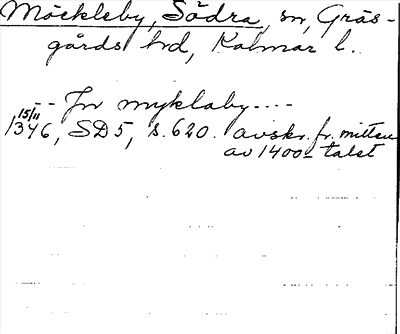 Möckleby, Södra, sn, Gräs-
gårds hd, Kalmar l.
-- Jn myklaby....-
15/11
1346, SD5, s. 620. avskr. fr. mitten
av 1400-talet